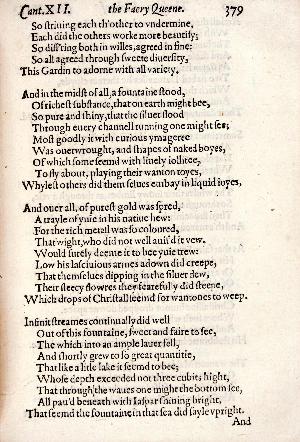 Cant.XII. the Faery Queene. 379
So striuing each th'other to vndermine,
Each did the others worke more beautify;
So diff'ring both in willes, agreed in fine:
So all agreed through sweete diuersity,
This Gardin to adorne with all variety.
And in the midst of all, a fountaine stood,
Of richest substance, that on earth might bee,
So pure and shiny, that the siluer flood
Through euery channell running one might see;
Most goodly it with curious ymageree
Was ouerwrought, and shapes of naked boyes,
Of which some seemd with liuely iollitee,
To fly about, playing their wanton toyes,
Whylest others did them selues embay in liquid ioyes,
And ouer all, of purest gold was spred,
A trayle of yuie in his natiue hew:
For the rich metall was so coloured,
That wight, who did not well auis'd it vew,
Would surely deeme it to bee yuie trew:
Low his lasciuious armes adown did creepe,
That themselues dipping in the siluer dew,
Their fleecy flowres they fearefully did steepe,
Which drops of Christall seemd for wantones to weep.
Infinit streames continually did well
Out of this fountaine, sweet and faire to see,
The which into an ample lauer fell,
And shortly grew to so great quantitie,
That like a litle lake it seemd to bee;
Whose depth exceeded not three cubits hight,
That through the waues one might the bottom see,
All pau'd beneath with Iaspar shining bright,
That seemd the fountaine in that sea did sayle vpright.
And